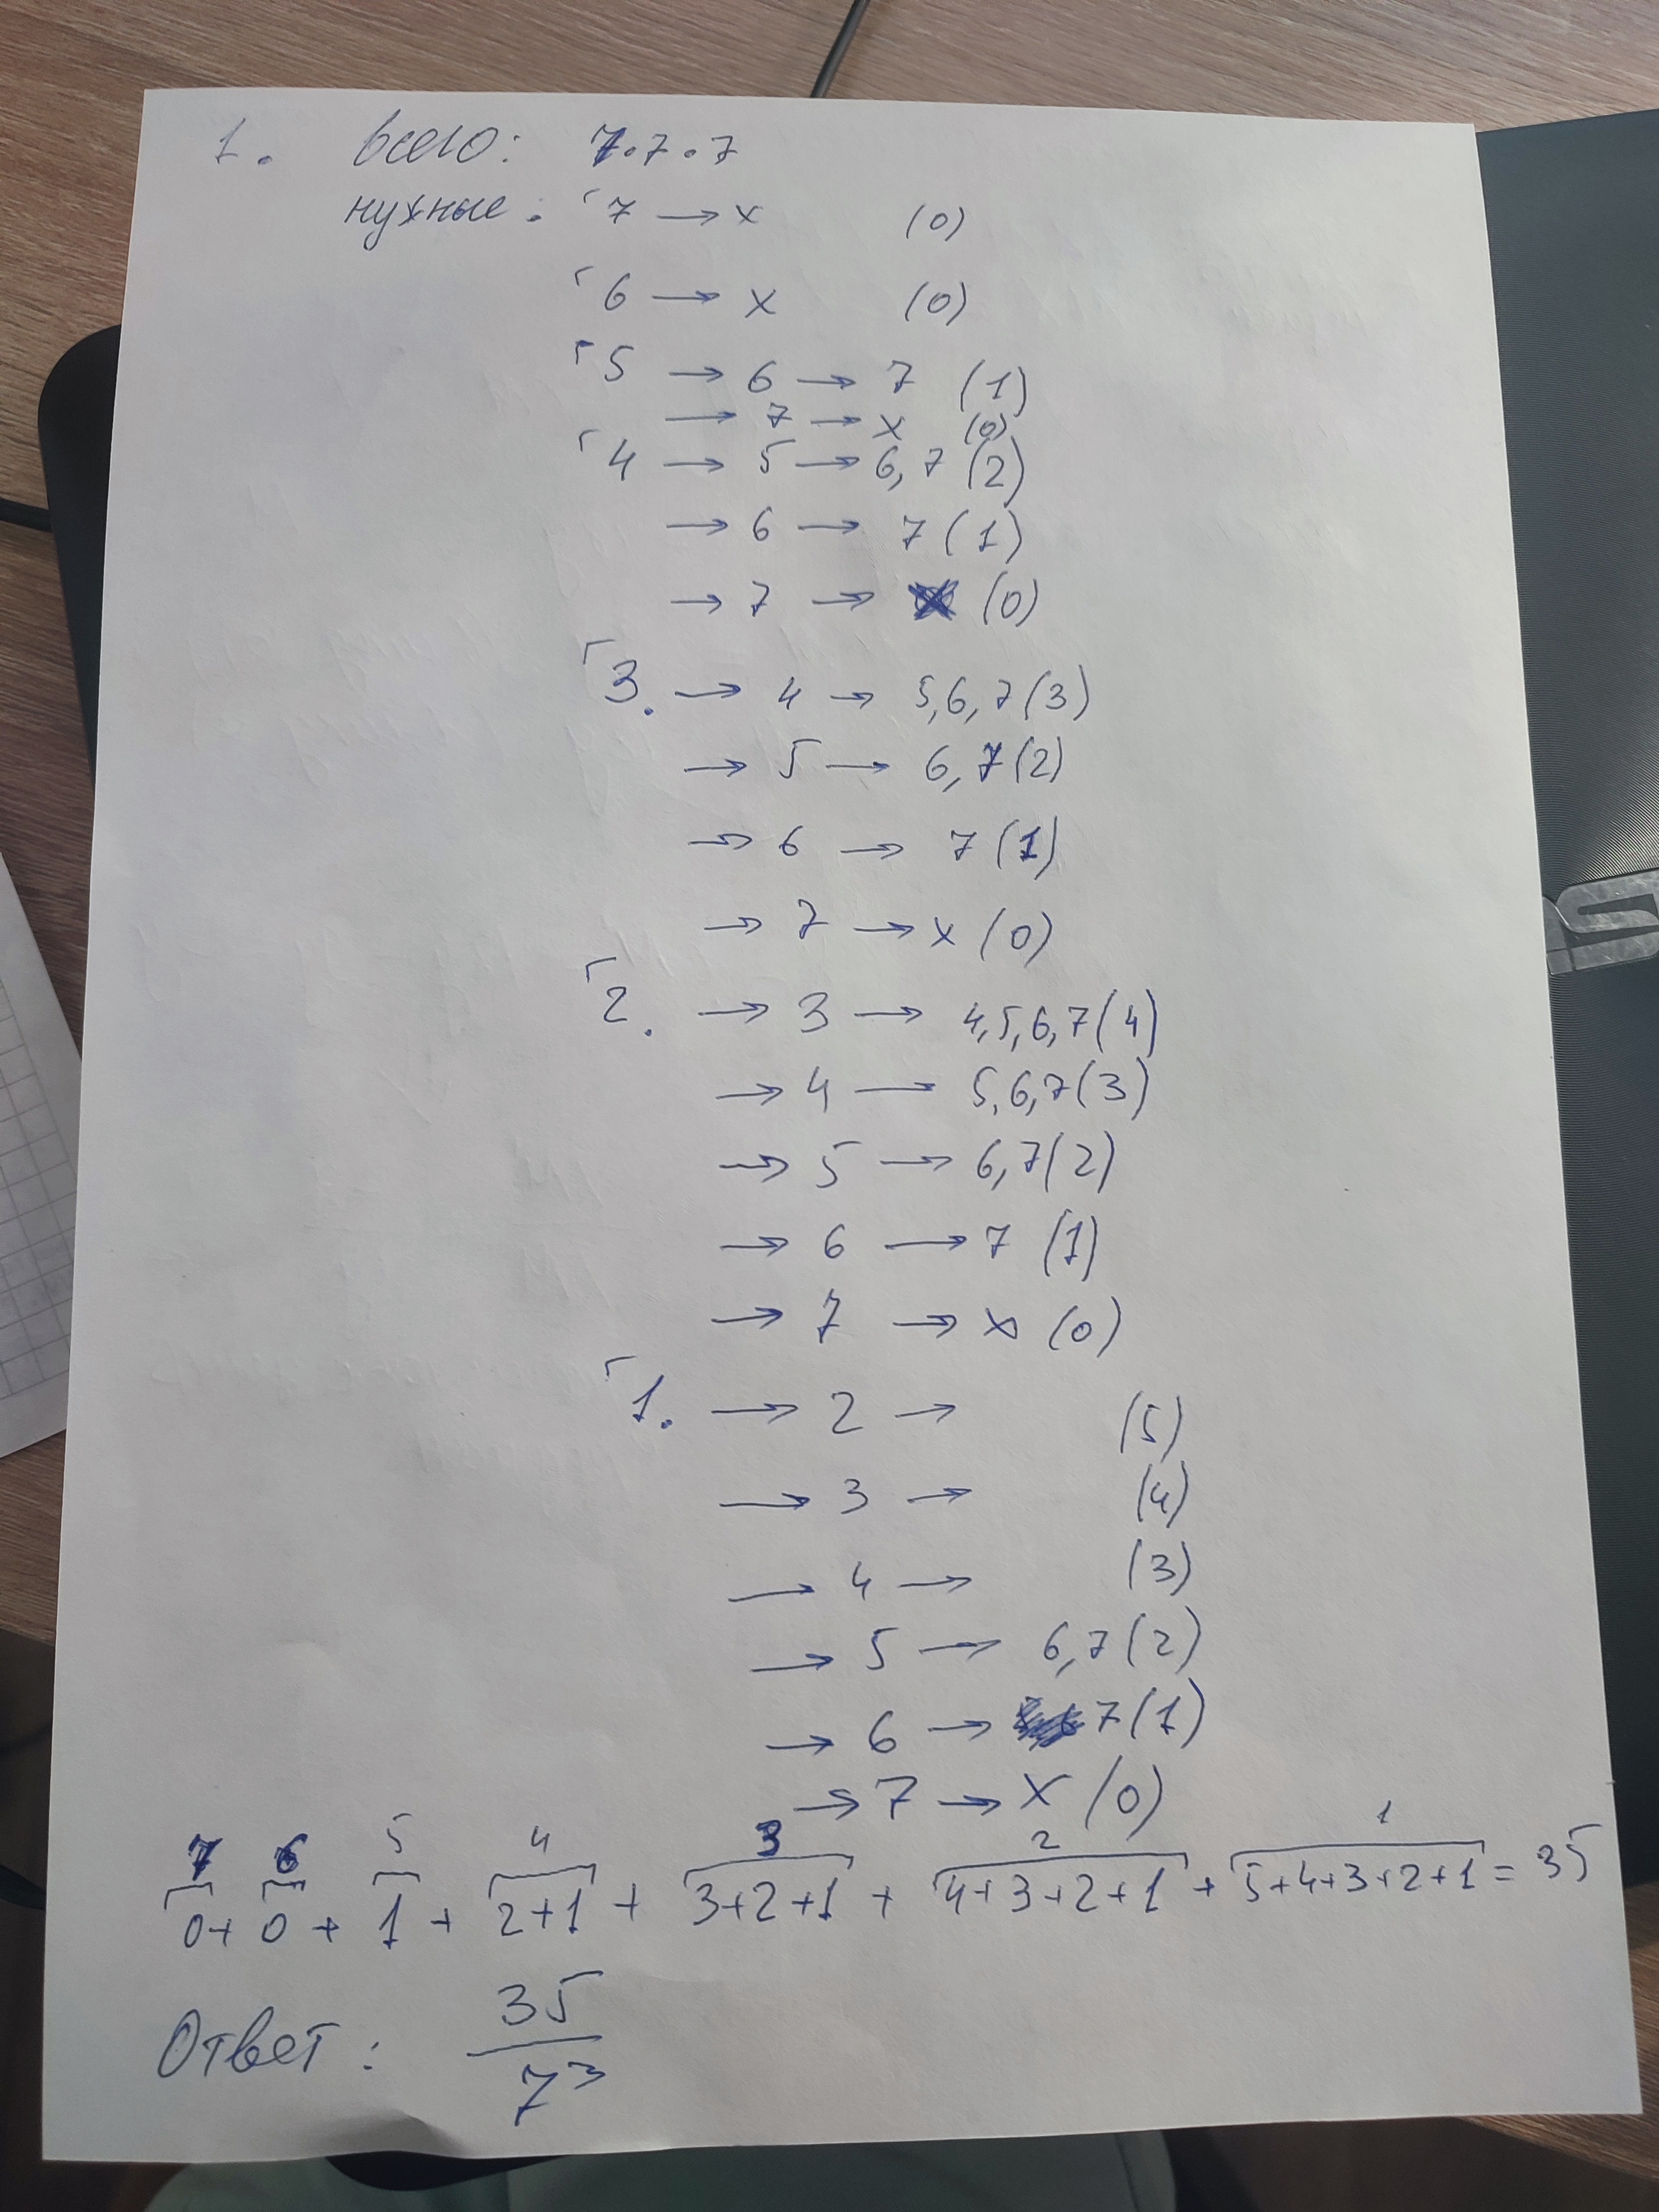 1. всего: 7·7·7
нужные: 7 → x (0)
6 → x (0)
5 → 6 → 7 (1)
→ 7 → x (0)
4 → 5 → 6, 7 (2)
→ 6 → 7 (1)
→ 7 → x (0)
3. → 4 → 5,6,7 (3)
→ 5 → 6, 7 (2)
→ 6 → 7 (1)
→ 7 → x (0)
2. → 3 → 4,5,6,7 (4)
→ 4 — 5,6,7 (3)
→ 5 → 6,7 (2)
→ 6 → 7 (1)
→ 7 → x (0)
1. → 2 → (5)
→ 3 → (4)
→ 4 → (3)
→ 5 → 6,7 (2)
→ 6 → 7 (1)
→ 7 → x (0)
7 6 5 4 3 2 1
0+ 0 + 1 + 2+1 + 3+2+1 + 4+3+2+1 + 5+4+3+2+1 = 35
Ответ: 35/7³